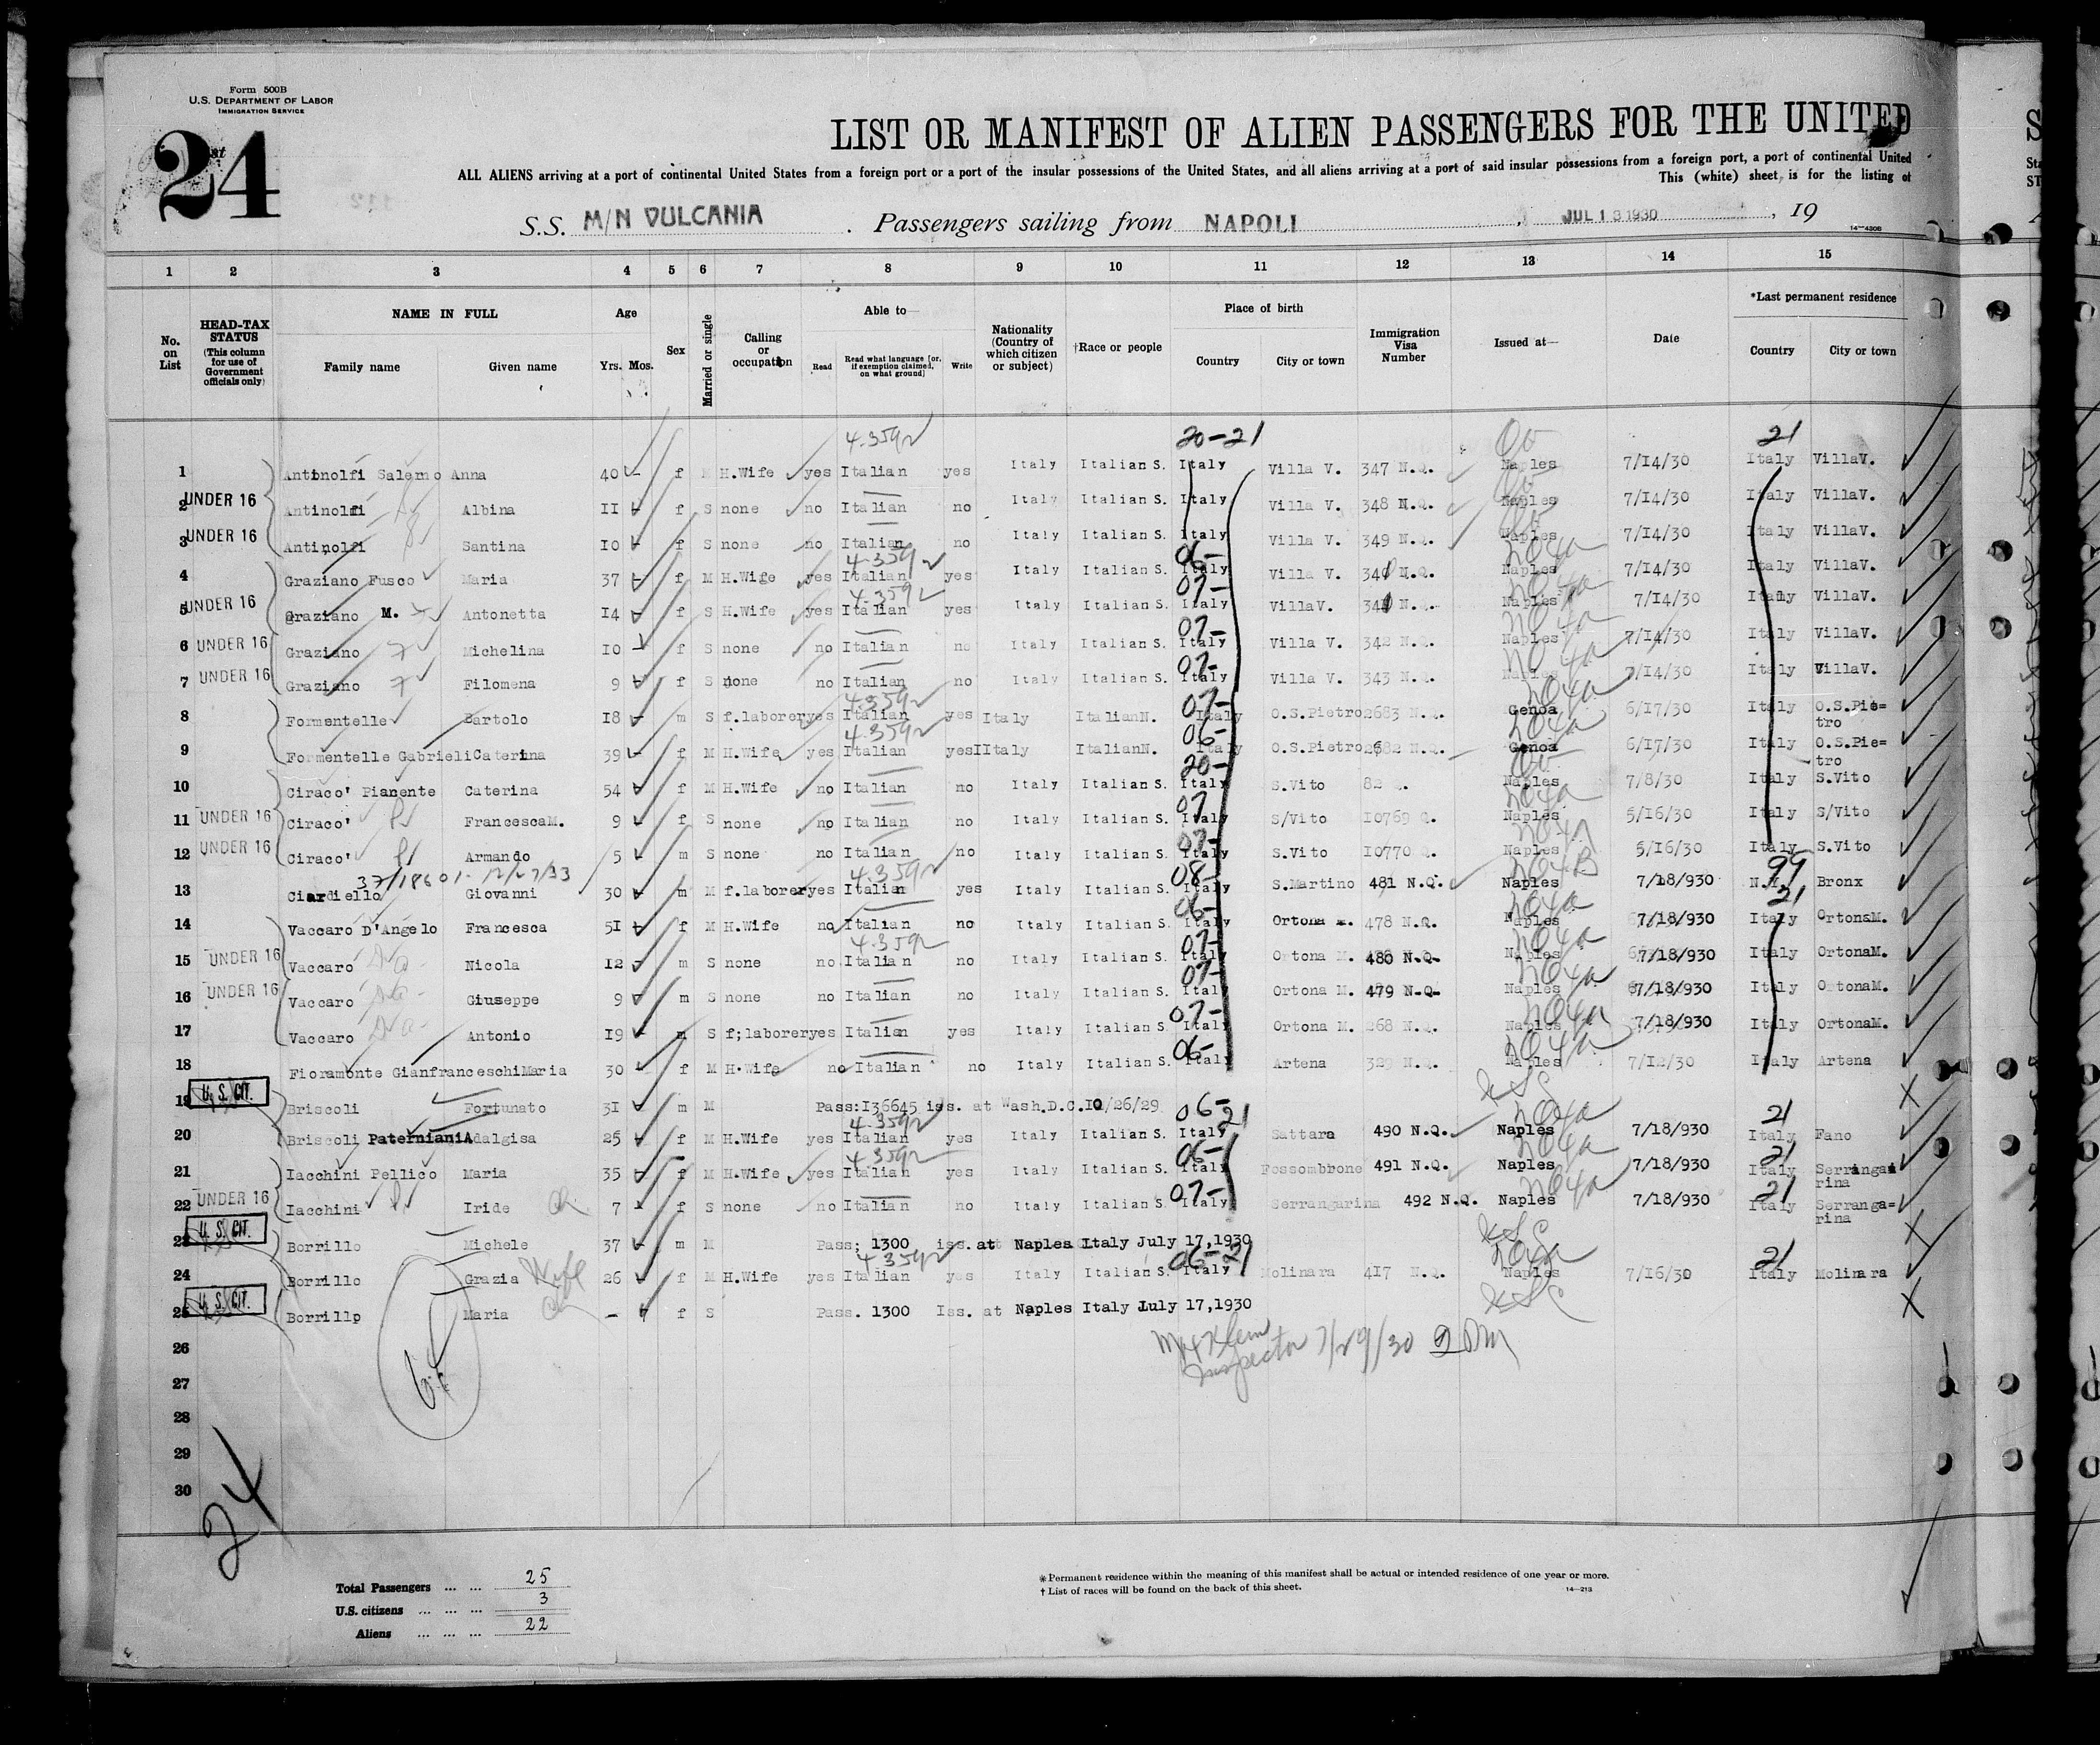 Form 500B
U.S. DEPARTMENT OF LABOR
IMMIGRATION SERVICE
24
LIST OR MANIFEST OF ALIEN PASSENGERS FOR THE UNITED
ALL ALIENS arriving at a port of continental United States from a foreign port or a port of the insular possessions of the United States, and all aliens arriving at a port of said insular possessions from a foreign port, a port of continental United
This (white) sheet is for the listing of
S.S. M/N VULCANIA . Passengers sailing from NAPOLI , JUL 18 1930 , 19
14-430B
1 2 3 4 5 6 7 8 9 10 11 12 13 14 15
No. on List
HEAD-TAX STATUS (This column for use of Government officials only)
NAME IN FULL
Family name Given name
Age
Yrs. Mos.
Sex
Married or single
Calling or occupation
Able to—
Read
Read what language [or, if exemption claimed, on what ground]
Write
Nationality (Country of which citizen or subject)
†Race or people
Place of birth
Country City or town
Immigration Visa Number
Issued at—
Date
*Last permanent residence
Country City or town
4-3592 20-21 21
1 Antinolfi Salerno Anna 40 f M H.Wife yes Italian yes Italy Italian S. Italy Villa V. 347 N.Q. Naples 7/14/30 Italy VillaV.
2 UNDER 16 Antinolfi Albina 11 f S none no Italian no Italy Italian S. Italy Villa V. 348 N.Q. Naples 7/14/30 Italy VillaV.
3 UNDER 16 Antinolfi Santina 10 f S none no Italian no Italy Italian S. Italy Villa V. 349 N.Q. Naples 7/14/30 Italy VillaV.
4-3592 06-
4 Graziano Fusco Maria 37 f M H.Wige yes Italian yes Italy Italian S. Italy Villa V. 340 N.Q. Naples 7/14/30 Italy VillaV.
4-3592 07-
5 UNDER 16 Graziano M. Antonetta 14 f S H.Wife yes Italian yes Italy Italian S. Italy VillaV. 341 N.Q. Naples 7/14/30 Italy VillaV.
07-
6 UNDER 16 Graziano Michelina 10 f S none no Italian no Italy Italian S. Italy Villa V. 342 N.Q. Naples 7/14/30 Italy VillaV.
07-
7 UNDER 16 Graziano Filomena 9 f S none no Italian no Italy Italian S. Italy Villa V. 343 N.Q. Naples 7/14/30 Italy VillaV.
4-3592 07-
8 Formentelle Bartolo 18 m S f.laborer yes Italian yes Italy ItalianN. Italy O.S.Pietro 2683 N.Q. Genoa 6/17/30 Italy O.S.Pie=tro
4-3592 06-
9 Formentelle Gabrieli Caterina 39 f M H.Wife yes Italian yes IItaly ItalianN. Italy O.S.Pietro 2682 N.Q. Genoa 6/17/30 Italy O.S.Pie=tro
20-
10 Ciraco' Pianente Caterina 54 f M H.Wife no Italian no Italy Italian S. Italy S.Vito 82 Q. Naples 7/8/30 Italy S.Vito
07-
11 UNDER 16 Ciraco' FrancescaM. 9 f S none no Italian no Italy Italian S. Italy S/Vito 10769 Q. Naples 5/16/30 Italy S/Vito
07-
12 UNDER 16 Ciraco' Armando 5 m S none no Italian no Italy Italian S. Italy S.Vito 10770 Q. Naples 5/16/30 Italy S.Vito
4-3592 08- 99
13 Ciardiello Giovanni 30 m M f.laborer yes Italian yes Italy Italian S. Italy S.Martino 481 N.Q. Naples 7/18/930 N.Y. Bronx
06- 21
14 Vaccaro D'Angelo Francesca 51 f M H.Wife no Italian no Italy Italian S. Italy Ortona M. 478 N.Q. Naples 7/18/930 Italy OrtonaM.
4-3592 07-
15 UNDER 16 Vaccaro Nicola 12 m S none no Italian no Italy Italian S. Italy Ortona M. 480 N.Q. Naples 7/18/930 Italy OrtonaM.
07-
16 UNDER 16 Vaccaro Giuseppe 9 m S none no Italian no Italy Italian S. Italy Ortona M. 479 N.Q. Naples 7/18/930 Italy OrtonaM.
07-
17 Vaccaro Antonio 19 m S f;laborer yes Italian yes Italy Italian S. Italy Ortona M. 268 N.Q. Naples 7/18/930 Italy OrtonaM.
06-
18 Fioramonte Gianfranceschi Maria 30 f M H.Wife no Italian no Italy Italian S. Italy Artena 329 N.Q. Naples 7/12/30 Italy Artena
19 U.S. CIT. Briscoli Fortunato 31 m M Pass:136645 iss. at Wash.D.C.10/26/29
4-3592 06-21 21
20 Briscoli Paterniani Adalgisa 25 f M H.Wife yes Italian yes Italy Italian S. Italy Sattara 490 N.Q. Naples 7/18/930 Italy Fano
4-3592 06- 21
21 Iacchini Pellico Maria 35 f M H.Wife yes Italian yes Italy Italian S. Italy Fossombrone 491 N.Q. Naples 7/18/930 Italy Serringarina
07- 21
22 UNDER 16 Iacchini Iride 7 f S none no Italian no Italy Italian S. Italy Serrangarina 492 N.Q. Naples 7/18/930 Italy Serranga=rina
23 U.S. CIT. Borrillo Michele 37 m M Pass; 1300 iss. at Naples Italy July 17,1930
4-3592 06-21 21
24 Borrillo Grazia Wife 26 f M H.Wife yes Italian yes Italy Italian S. Italy Molinara 417 N.Q. Naples 7/16/30 Italy Molinara
25 U.S. CIT. Borrillp Maria - 7 f S Pass. 1300 Iss. at Naples Italy July 17,1930
Inspector 7/29/30
26
27
28
29
30
24
Total Passengers ... ... 25
U.S. citizens ... ... ... 3
Aliens ... ... ... 22
* Permanent residence within the meaning of this manifest shall be actual or intended residence of one year or more.
† List of races will be found on the back of this sheet.
14-213